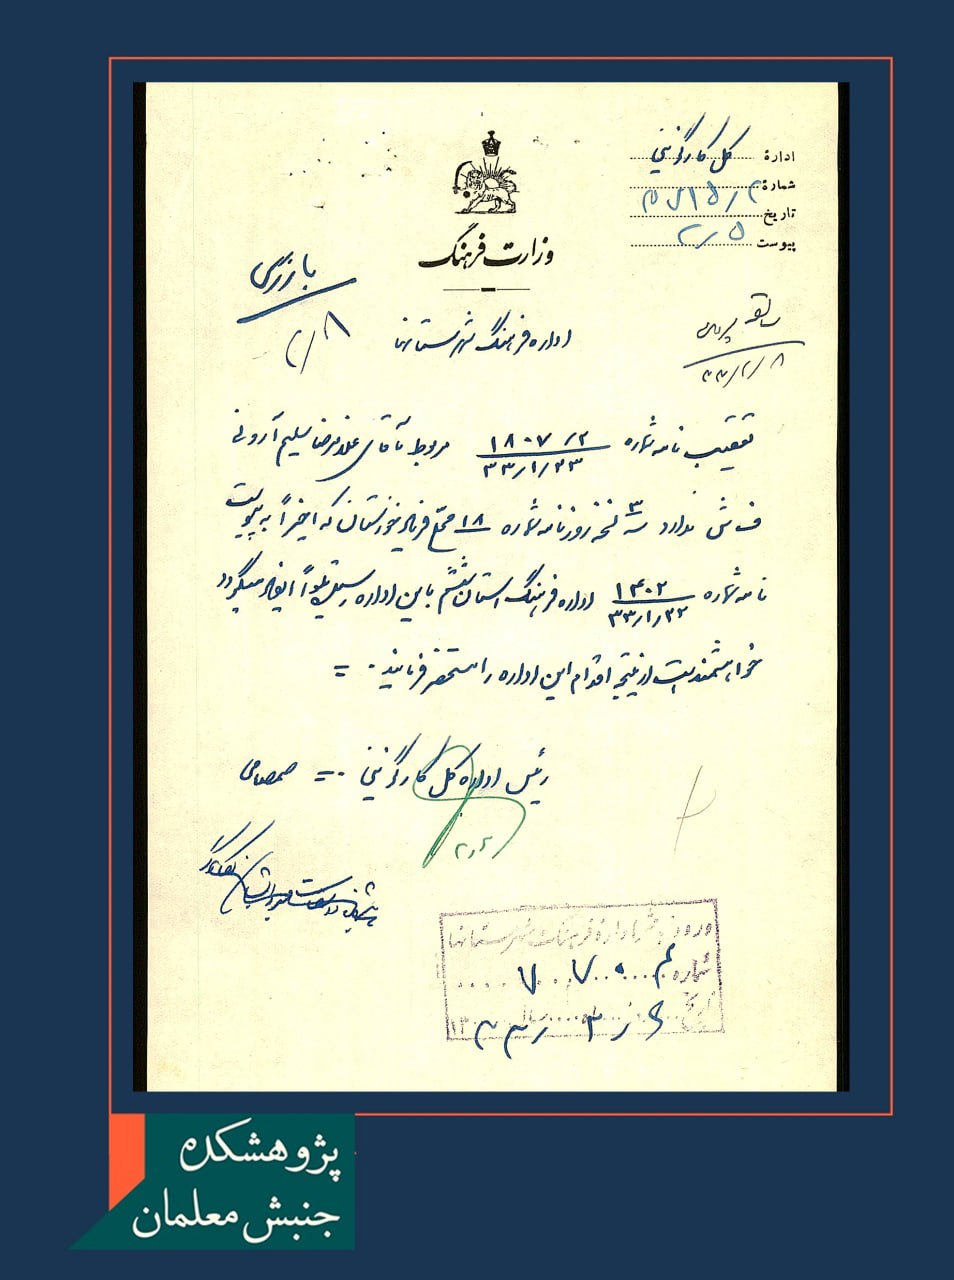 ادارهٔ کل کارگزینی
شمارهٔ
تاریخ
پیوست ۲/۵
وزارت فرهنگ
بازرسی
۲/۸
اداره فرهنگ شهرستانها
۳۳/۲/۸
تعقیب نامه شماره ۲/ ۱۸۰۷
۳۳/۱/۲۳ مربوط بآقای غلامرضا سلیم آرونی
سه نسخه روزنامه شماره ۱۸ خوزستان که اخیراً به پیوست
نامه شماره ۱۴۰۲
۳۳/۱/۲۲ اداره فرهنگ استان ششم باین اداره رسیده تلواً ایفاد میگردد
خواهشمند است از نتیجه اقدام این اداره را مستحضر فرمایند . =
رئیس اداره کل کارگزینی . = صمصامی
ورود بدفتر اداره فرهنگ شهرستانها
شماره
تاریخ
پژوهشکده
جنبش معلمان